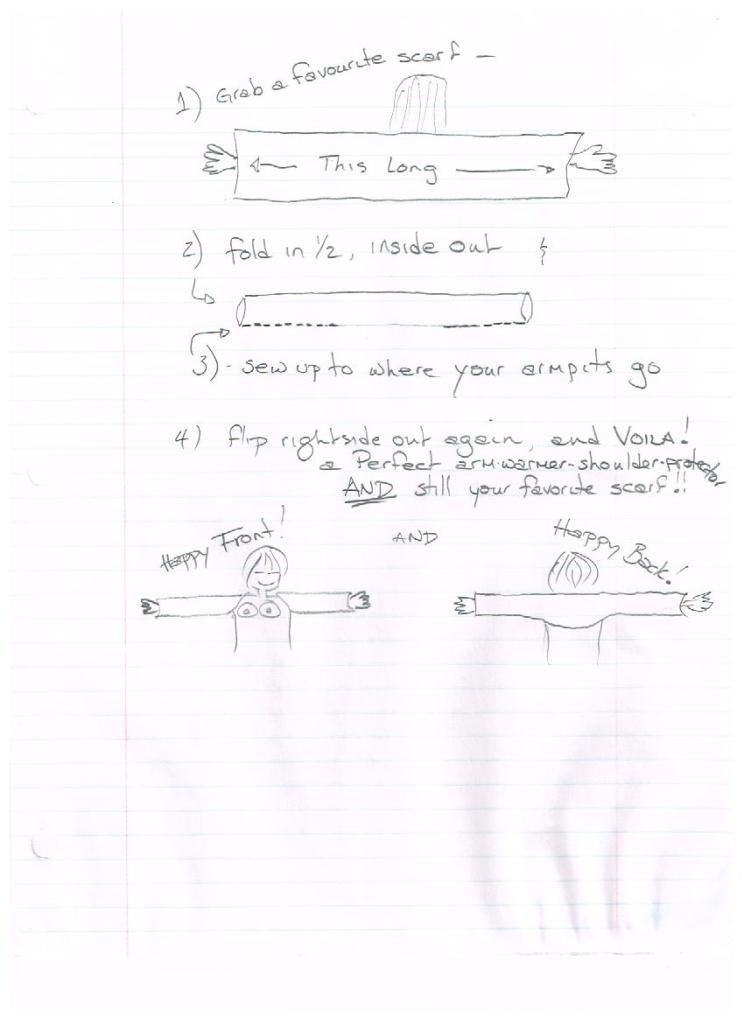 1) Grab a favourite scarf —
This Long
2) fold in 1/2, inside out &
3) - sew up to where your armpits go
4) flip rightside out again, and VOILA!
a Perfect arm-warmer-shoulder-protector
AND still your favorite scarf!!
Happy Front!
AND
Happy Back!